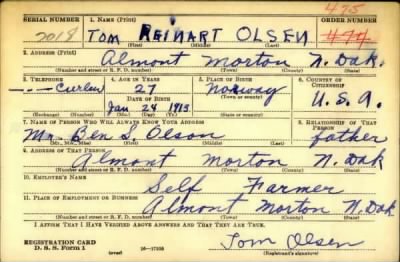 475
SERIAL NUMBER 1. NAME (Print) ORDER NUMBER
2018 TOM REINART OLSEN 474
(First) (Middle) (Last)
2. ADDRESS (Print)
Almont Morton N. Dak.
(Number and street or R. F. D. number) (Town) (County) (State)
3. TELEPHONE 4. AGE IN YEARS 5. PLACE OF BIRTH 6. COUNTRY OF CITIZENSHIP
Curlew 27 Norway
DATE OF BIRTH (Town or county) U. S. A.
Jan 24 1913
(Exchange) (Number) (Mo.) (Day) (Yr.) (State or country)
7. NAME OF PERSON WHO WILL ALWAYS KNOW YOUR ADDRESS 8. RELATIONSHIP OF THAT PERSON
Mr. Ben S. Olson father
(Mr., Mrs., Miss) (First) (Middle) (Last)
9. ADDRESS OF THAT PERSON
Almont Morton N. Dak
(Number and street or R. F. D. number) (Town) (County) (State)
10. EMPLOYER'S NAME
Self Farmer
11. PLACE OF EMPLOYMENT OR BUSINESS
Almont Morton N. Dak
(Number and street or R. F. D. number) (Town) (County) (State)
I AFFIRM THAT I HAVE VERIFIED ABOVE ANSWERS AND THAT THEY ARE TRUE.
REGISTRATION CARD
D. S. S. Form 1 Tom Olsen
(Registrant's signature)